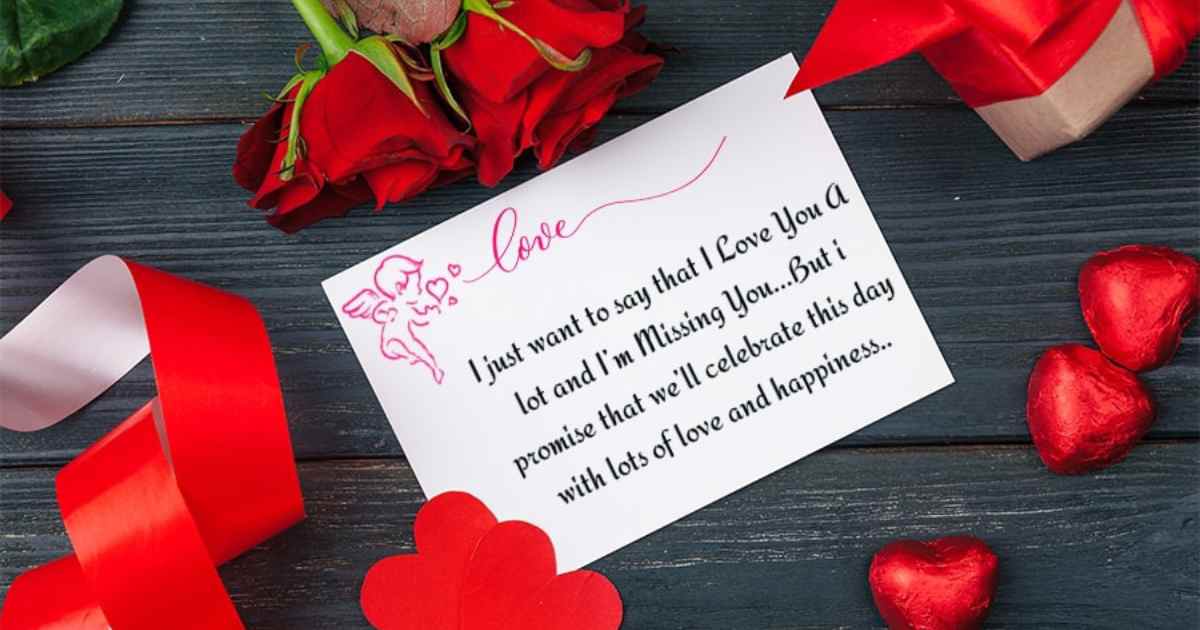 love
I just want to say that I Love You A
lot and I'm Missing You...But i
promise that we'll celebrate this day
with lots of love and happiness..